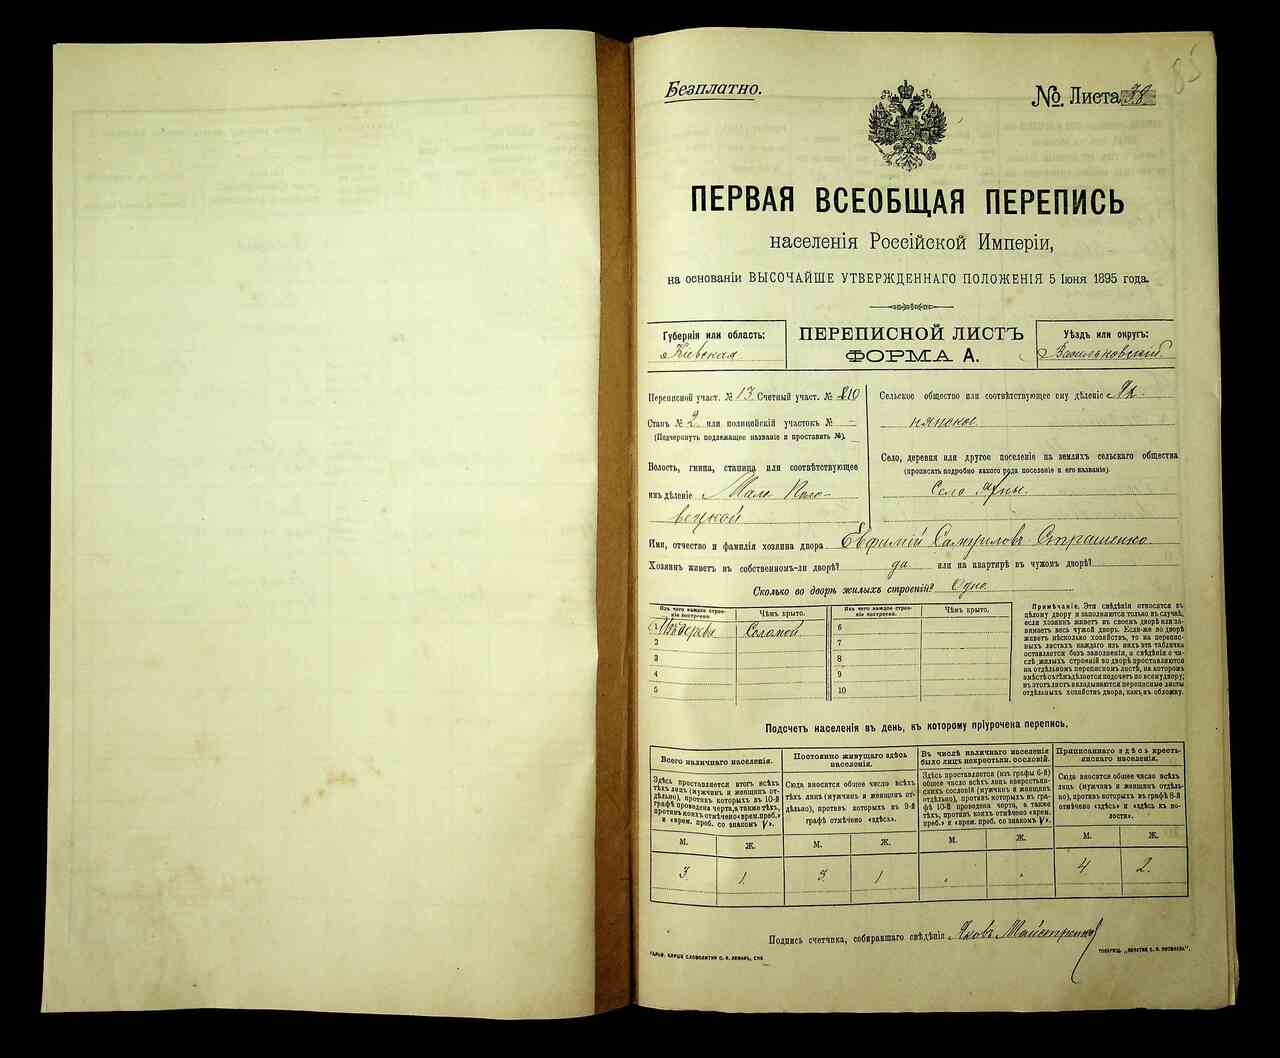 85
Безплатно.
№ Листа 38
ПЕРВАЯ ВСЕОБЩАЯ ПЕРЕПИСЬ
населенія Россійской Имперіи,
на основаніи ВЫСОЧАЙШЕ УТВЕРЖДЕННАГО ПОЛОЖЕНІЯ 5 Іюня 1895 года.
Губернія или область:
Кіевская
ПЕРЕПИСНОЙ ЛИСТЪ
ФОРМА А.
Уѣздъ или округъ:
Васильковскій
Переписной участ. № 13 Счетный участ. №
Станъ № 2 или полицейскій участокъ № —
(Подчеркнуть подлежащее названіе и проставить №).
Волость, гмина, станица или соотвѣтствующее
имъ дѣленіе Мало Поло-
вецкой
Сельское общество или соотвѣтствующее ему дѣленіе Як-
нянское
Село, деревня или другое поселеніе на земляхъ сельскаго общества
(прописать подробно какого рода поселеніе и его названіе).
Село Яхны.
Имя, отчество и фамилія хозяина двора Евфимій Самуиловъ Страшенко.
Хозяинъ живетъ въ собственномъ-ли дворѣ? да или на квартирѣ въ чужомъ дворѣ?
Сколько во дворѣ жилыхъ строеній? Одно
Изъ чего каждое строе-
ніе построено.
Чѣмъ крыто.
1 Изъ дерева Соломой
2
3
4
5
Изъ чего каждое строе-
ніе построено.
Чѣмъ крыто.
6
7
8
9
10
Примѣчаніе. Эти свѣдѣнія относятся къ
цѣлому двору и заполняются только въ случаѣ,
если хозяинъ живетъ въ своемъ дворѣ или за-
нимаетъ весь чужой дворъ. Если-же во дворѣ
живетъ нѣсколько хозяйствъ, то на перепис-
ныхъ листахъ каждаго изъ нихъ эта табличка
оставляется безъ заполненія, а свѣдѣнія о чи-
слѣ жилыхъ строеній во дворѣ проставляются
на отдѣльномъ переписномъ листѣ, на которомъ
вмѣстѣ съ тѣмъ дѣлается подсчетъ по всему двору;
въ этотъ листъ вкладываются переписные листы
отдѣльныхъ хозяйствъ двора, какъ въ обложку.
Подсчетъ населенія въ день, къ которому пріурочена перепись.
Всего наличнаго населенія.
Здѣсь проставляется итогъ всѣхъ
тѣхъ лицъ (мужчинъ и женщинъ от-
дѣльно), противъ которыхъ въ 10-й
графѣ проведена черта, а также тѣхъ,
противъ коихъ отмѣчено «врем. преб.»
и «врем. преб. со знакомъ V».
Постоянно живущаго здѣсь
населенія.
Сюда вносится общее число всѣхъ
тѣхъ лицъ (мужчинъ и женщинъ от-
дѣльно), противъ которыхъ въ 9-й
графѣ отмѣчено «здѣсь».
Въ числѣ наличнаго населенія
было лицъ некрестьян. сословій.
Здѣсь проставляется (изъ графы 6-й)
общее число всѣхъ лицъ некрестьян-
скихъ сословій (мужчинъ и женщинъ
отдѣльно), противъ которыхъ въ гра-
фѣ 10-й проведена черта, а также
тѣхъ, противъ коихъ отмѣчено «врем.
преб.» и «врем. преб. со знакомъ V».
Приписаннаго здѣсь кресть-
янскаго населенія.
Сюда вносится общее число всѣхъ
лицъ (мужчинъ и женщинъ отдѣль-
но), противъ которыхъ въ графѣ 8-й
отмѣчено «здѣсь» и «здѣсь къ во-
лости».
М. Ж. М. Ж. М. Ж. М. Ж.
3. 1. 3. 1 . . 4. 2.
Подпись счетчика, собиравшаго свѣдѣнія Яковъ Майстренко
ГАЛЬВ. КЛИШЕ СЛОВОЛИТНИ О. И. ЛЕМАНЪ, СПБ
ТОВАРИЩ. „ПЕЧАТНЯ С. П. ЯКОВЛЕВА".